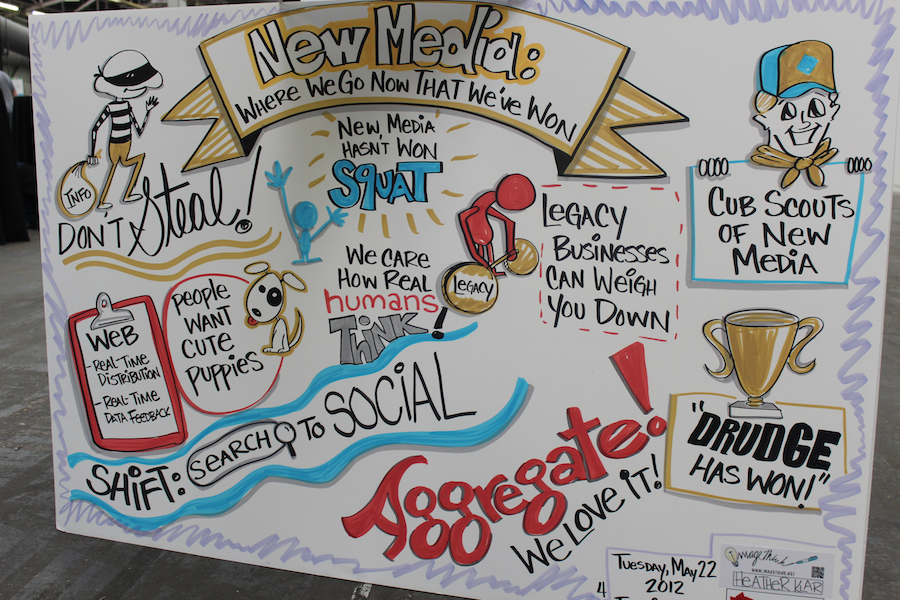 New Media:
Where We Go Now That We've Won
INFO
DON'T Steal!
New Media
Hasn't Won
SQUAT
We Care
How Real
humans
Think!
LEGACY
Legacy
Businesses
Can Weigh
You Down
Cub Scouts
of New
Media
Web
- Real-Time
Distribution
- Real-Time
Data Feedback
People
Want
Cute
Puppies
Shift: Search to Social
Aggregate!
We Love It!
"Drudge
Has Won!"
Tuesday, May 22
2012
4
ImageThink
www.imagethink.net
Heather Klar